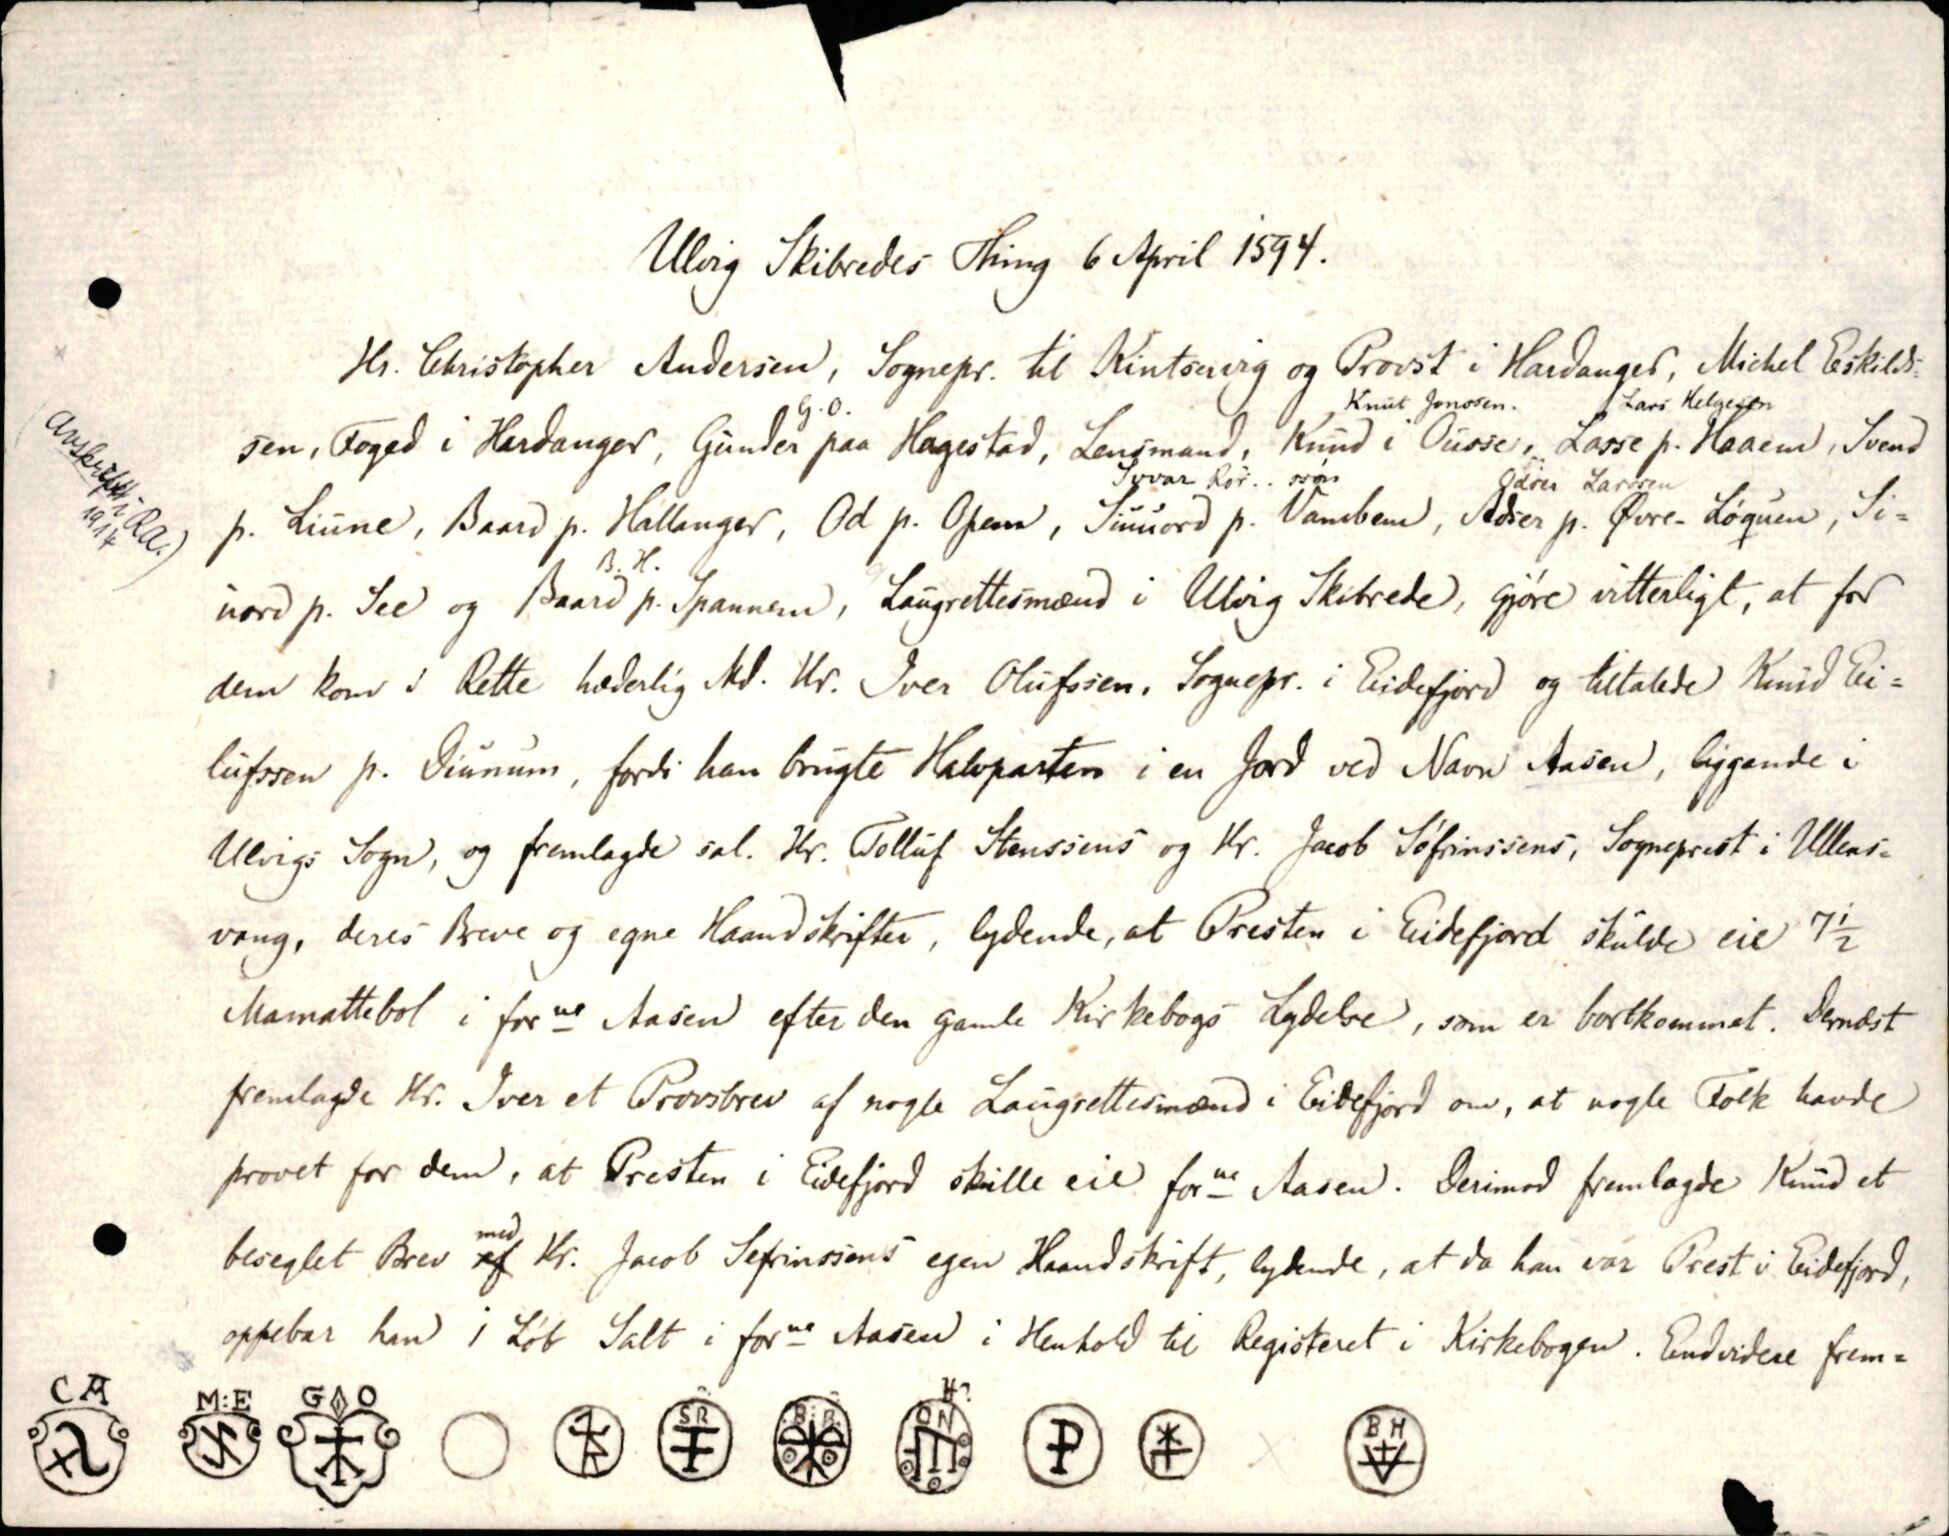 Ulvig Skibredes Thing 6 April 1594.
Hr. Christopher Andersen, Sognepr. til Kintservig og Provst i Hardanger, Michel Eskilds-
G. O. Knut Jonssen. Lars Helgesen
sen, Foged i Hardanger, Gunder paa Hagestad, Lensmand, Knud i Ousse, Lasse p. Haaem, Svend
Syvar Ror.. ssøn Adser Larssen
p. Liune, Baard p. Hallanger, Od p. Opem, Siuuord p. Vambem, Adser p. Øvre-Løquen, Si=
B. H.
uord p. See og Baard p. Spannem, Laugrettesmænd i Ulvig Skibrede, gjøre vitterligt, at for
dem kom i Rette hæderlig Md. Hr. Iver Olufssen, Sognepr. i Eidefjord og tiltalede Knud Ei=
lufssen p. Diunum, fordi han brugte Halvparten i en Jord ved Navn Aasen, liggende i
Ulvigs Sogn, og fremlagde sal. Hr. Tolluf Stenssens og Hr. Jacob Søfrinssens, Sogneprest i Ullens=
vang, deres Breve og egne Haandskrifter, lydende, at Presten i Eidefjord skulde eie 7 1/2
Mamattebol i forne Aasen efter den gamle Kirkebogs Lydelse, som er bortkommet. Dernæst
fremlagde Hr. Iver et Provsbrev af nogle Laugrettesmænd i Eidefjord om, at nogle Folk havde
provet for dem, at Presten i Eidefjord skulle eie forne Aasen. Derimod fremlagde Knud et
med
beseglet Brev af Hr. Jacob Sefrinssens egen Haandskrift, lydende, at da han var Prest i Eidefjord,
oppebar han 1 Løb Salt i forne Aasen i Henhold til Registeret i Kirkebogen. Endvidere frem=
(Avskrift i RA.)
1914
CA M:E G O SR B:B: ON H? BH